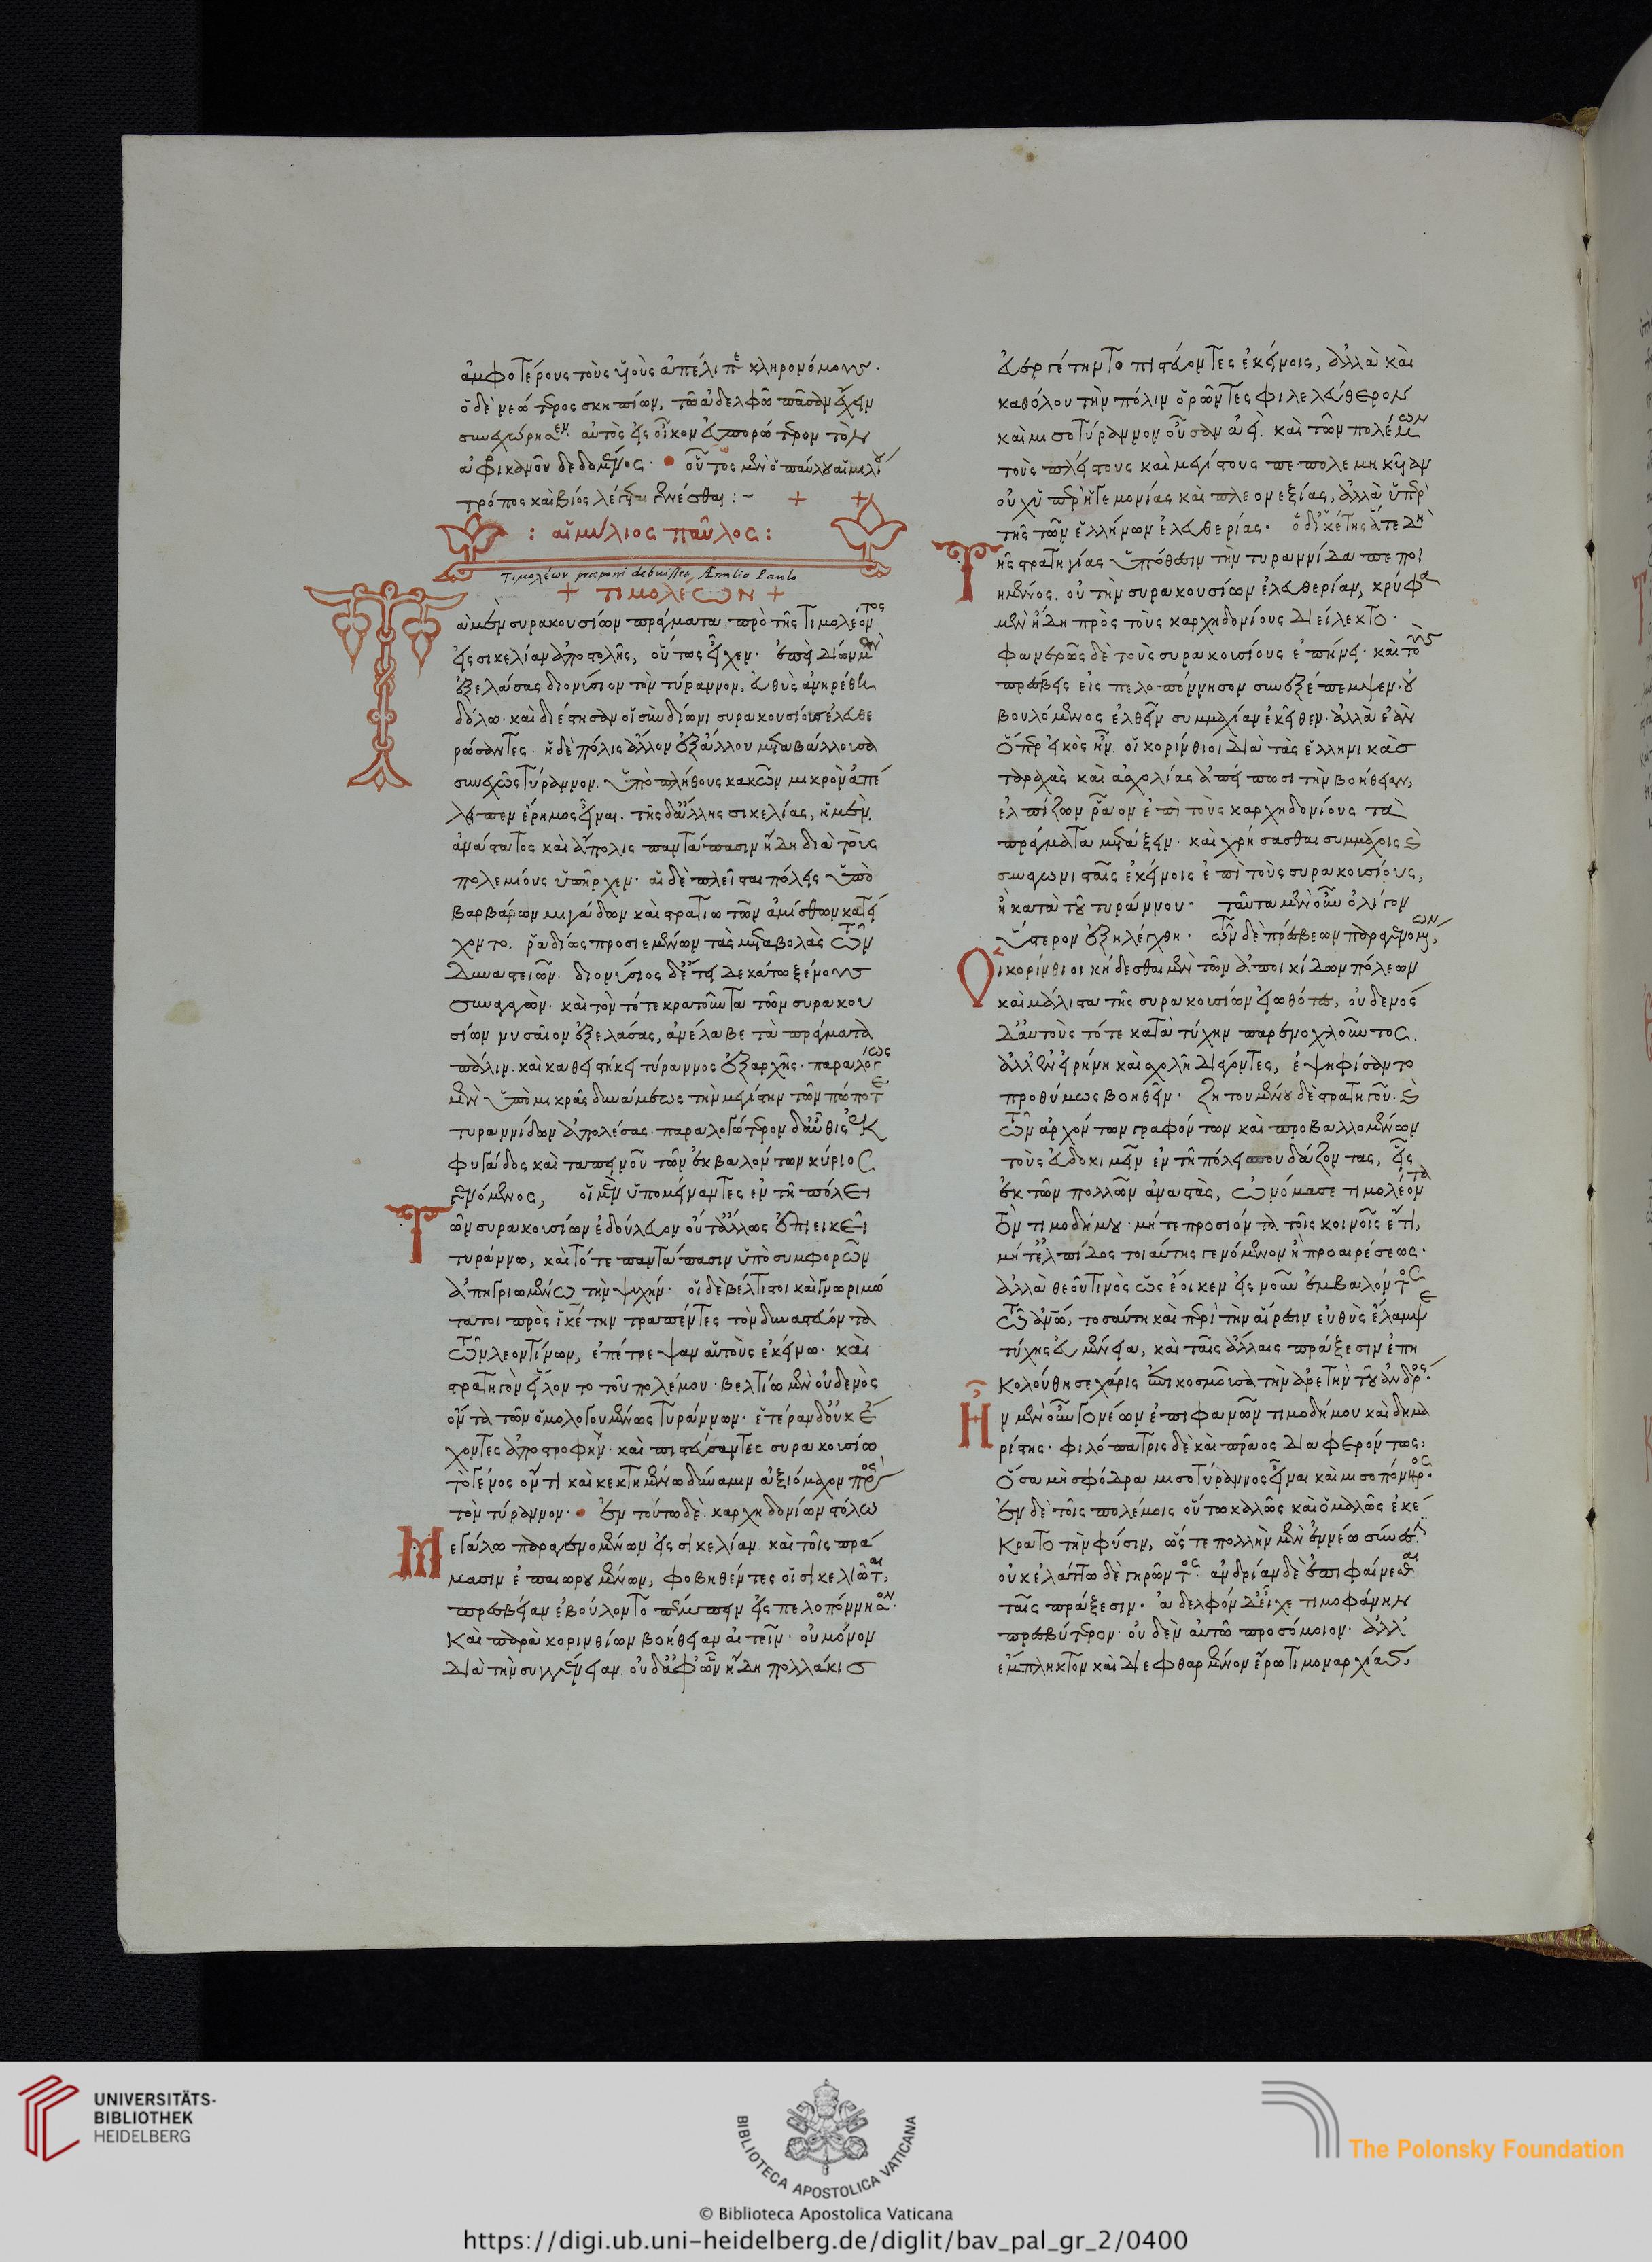 ἀμφοτέρους τοὺς υἱοὺς ἀπέλιπε κληρονόμους.
ὁ δὲ νεώτερος σκηπίων, τῶ ἀδελφῶ πᾶσαν ἔχειν
συνεχώρησεν. αὐτὸς εἰς οἶκον εὐπορώτερον τὸν
ἀφρικανοῦ δεδομένος. οὗτος μὲν ὁ παύλου αἰμιλίου
τρόπος καὶ βίος λέγεται γενέσθαι :~ + +
: αἰμύλιος παῦλος :
Τιμολέων præponi debuisset Æmilio Paulo
+ τιμολέων +
Τὰ μὲν συρακουσίων πράγματα πρὸ τῆς τιμολέοντος
εἰς σικελίαν ἀποστολῆς, οὕτως εἶχεν. ἐπεὶ δίων μὲν
ἐξελάσας διονύσιον τὸν τύραννον, εὐθὺς ἀνηρέθη
δόλω. καὶ διέστησαν οἱ σὺν δίωνι συρακουσίους ἐλευθε
ρώσαντες. ἡ δὲ πόλις ἄλλον ἐξ ἄλλου μεταβάλλουσα
συνεχῶς τύραννον. ὑπὸ πλήθους κακῶν μικρὸν ἀπέ
λειπεν ἔρημος εἶναι. τῆς δ' ἄλλης σικελίας, ἡ μὲν
ἀνάστατος καὶ ἄπολις παντάπασιν ἤδη διὰ τοὺς
πολεμίους ὑπῆρχεν. αἱ δὲ πλεῖσται πόλεις ὑπὸ
βαρβάρων μιγάδων καὶ στρατιωτῶν ἀμίσθων κατεί
χοντο. ῥαδίως προσιεμένων τὰς μεταβολὰς τῶν
δυναστειῶν. διονύσιος δ' ἔτει δεκάτω ξένους
συναγαγὼν. καὶ τὸν τότε κρατοῦντα τῶν συρακου
σίων νυσαῖον ἐξελάσας, ἀνέλαβε τὰ πράγματα
πάλιν. καὶ καθειστήκει τύραννος ἐξαρχῆς. παραλόγως
μὲν ὑπὸ μικρᾶς δυνάμεως τὴν μεγίστην τῶν πώποτε
τυραννίδων ἀπολέσας. παραλογώτερον δ' αὖθις ἐκ
φυγάδος καὶ ταπεινοῦ τῶν ἐκβαλόντων κύριος
γενόμενος, οἱ μὲν ὑπομείναντες ἐν τῆ πόλει
Τῶν συρακουσίων ἐδούλευον οὔτ' ἄλλως ἐπιεικεῖ
τυράννω, καὶ τότε παντάπασιν ὑπὸ συμφορῶν
ἀπηγριωμένω τὴν ψυχήν. οἱ δὲ βέλτιστοι καὶ γνωριμώ
τατοι πρὸς ἱκέτην τραπέντες τὸν δυναστεύοντα
τῶν λεοντίνων, ἐπέτρεψαν αὑτοὺς ἐκείνω. καὶ
στρατηγὸν εἵλοντο τοῦ πολέμου. βελτίω μὲν οὐδενὸς
ὄντα τῶν ὁμολογουμένως τυράννων. ἑτέραν δ' οὐκ ἔ
χοντες ἀποστροφήν. καὶ πιστεύσαντες συρακουσίω
τὸ γένος ὄντι. καὶ κεκτημένω δύναμιν ἀξιόμαχον πρὸς
τὸν τύραννον. ἐν τούτω δὲ καρχηδονίων στόλω
Μεγάλω παραγενομένων εἰς σικελίαν. καὶ τοῖς πρά
μασιν ἐπαιωρουμένων, φοβηθέντες οἱ σικελιῶται,
πρεσβείαν ἐβούλοντο πέμπειν εἰς πελοπόννησον.
Καὶ παρὰ κορινθίων βοήθειαν αἰτεῖν. οὐ μόνον
διὰ τὴν συγγένειαν. οὐδ' ἀφ' ὧν ἤδη πολλάκις
εὐεργέτηντο πιστεύοντες ἐκείνοις, ἀλλὰ καὶ
καθόλου τὴν πόλιν ὁρῶντες φιλελεύθερον
καὶ μισοτύραννον οὖσαν ἀεί. καὶ τῶν πολέμων
τοὺς πλείστους καὶ μεγίστους πεπολεμηκυῖαν
οὐχ ὑπὲρ ἡγεμονίας καὶ πλεονεξίας, ἀλλὰ ὑπὲρ
τῆς τῶν ἑλλήνων ἐλευθερίας. ὁ δ' ἱκέτης ἅτε δὴ
Τῆς στρατηγίας ὑπόθεσιν τὴν τυραννίδα πεποι
ημένος. οὐ τὴν συρακουσίων ἐλευθερίαν, κρύφα
μὲν ἤδη πρὸς τοὺς καρχηδονίους διείλεκτο.
φανερῶς δὲ τοὺς συρακουσίους ἐπήνει. καὶ τοὺς
πρέσβεις εἰς πελοπόννησον συνεξέπεμψεν. οὐ
βουλόμενος ἐλθεῖν συμμαχίαν ἐκεῖθεν. ἀλλὰ ἐὰν
ὅπερ εἰκὸς ἦν. οἱ κορίνθιοι διὰ τὰς ἑλληνικὰς
ταραχὰς καὶ ἀσχολίας ἀπείπωσι τὴν βοήθειαν,
ἐλπίζων ῥᾶον ἐπὶ τοὺς καρχηδονίους τὰ
πράγματα μετάξειν. καὶ χρήσασθαι συμμάχοις καὶ
συναγωνισταῖς ἐκείνοις ἐπὶ τοὺς συρακουσίους,
ἢ κατὰ τοῦ τυράννου. ταῦτα μὲν οὖν ὀλίγον
ὕστερον ἐξηλέγχθη. τῶν δὲ πρέσβεων παραγενομένων,
Οἱ κορίνθιοι κήδεσθαι μὲν τῶν ἀποικίδων πόλεων
καὶ μάλιστα τῆς συρακουσίων εἰωθότες, οὐδενὸς
δ' αὐτοὺς τότε κατὰ τύχην παρενοχλοῦντος.
ἀλλ' ἐν εἰρήνη καὶ σχολῆ διάγοντες, ἐψηφίσαντο
προθύμως βοηθεῖν. ζητουμένου δὲ στρατηγοῦ. καὶ
τῶν ἀρχόντων γραφόντων καὶ προβαλλομένων
τοὺς εὐδοκιμεῖν ἐν τῆ πόλει σπουδάζοντας, εἷς
ἐκ τῶν πολλῶν ἀναστὰς, ὠνόμασε τιμολέοντα
τὸν τιμοδήμου. μήτε προσιόντα τοῖς κοινοῖς ἔτι,
μήτ' ἐλπίδος τοιαύτης γενόμενον ἢ προαιρέσεως.
ἀλλὰ θεοῦ τινὸς ὡς ἔοικεν εἰς νοῦν ἐμβαλόντος
τῶ ἀνθρώπω, τοσαύτη καὶ περὶ τὴν αἵρεσιν εὐθὺς ἔλαμψε
τύχης εὐμένεια, καὶ ταῖς ἄλλαις πράξεσιν ἐπη
κολούθησε χάρις ἐπικοσμοῦσα τὴν ἀρετὴν τοῦ ἀνδρός.
Ἦν μὲν οὖν γονέων ἐπιφανῶν τιμοδήμου καὶ δημα
ρίστης. φιλόπατρις δὲ καὶ πρᾶος διαφερόντως,
ὅσα μὴ σφόδρα μισοτύραννος εἶναι καὶ μισοπόνηρος.
ἐν δὲ τοῖς πολέμοις οὕτω καλῶς καὶ ὁμαλῶς ἐκέ
κρατο τὴν φύσιν, ὥστε πολλὴν μὲν ἐν νέω σύνεσιν.
οὐκ ἐλάττω δὲ γηρῶντος. ἀνδρίαν δὲ ἐπιφαίνεσθαι
ταῖς πράξεσιν. ἀδελφὸν δ' εἶχε τιμοφάνην
πρεσβύτερον. οὐδὲν αὐτῶ προσόμοιον. ἀλλ'
ἔμπληκτον καὶ διεφθαρμένον ἔρωτι μοναρχίας,
UNIVERSITÄTS-
BIBLIOTHEK
HEIDELBERG
BIBLIOTECA APOSTOLICA VATICANA
The Polonsky Foundation
© Biblioteca Apostolica Vaticana
https://digi.ub.uni-heidelberg.de/diglit/bav_pal_gr_2/0400